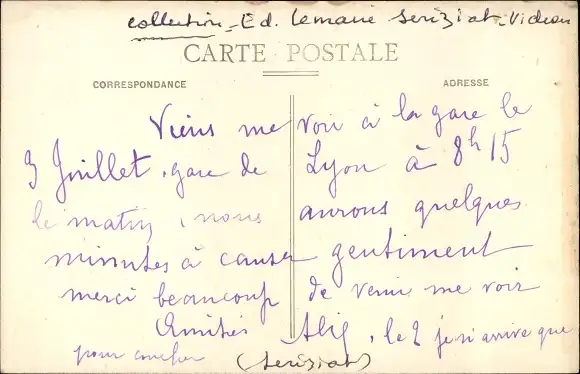 collection - Ed. Lemaire Seriziat - Vidron
CARTE POSTALE
CORRESPONDANCE
ADRESSE
Viens me voir à la gare le
3 Juillet, gare de Lyon à 8h15
le matin, nous aurons quelques
minutes à causer gentiment
merci beaucoup de venir me voir
Amitiés Alix, le 2 je n'arrive que
pour coucher
(Seriziat)